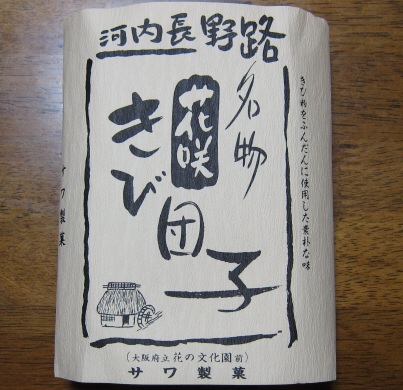 河内長野路
きび粉をふんだんに使用した素朴な味
名物
花咲
きび団子
サワ製菓
(大阪府立花の文化園前)
サワ製菓